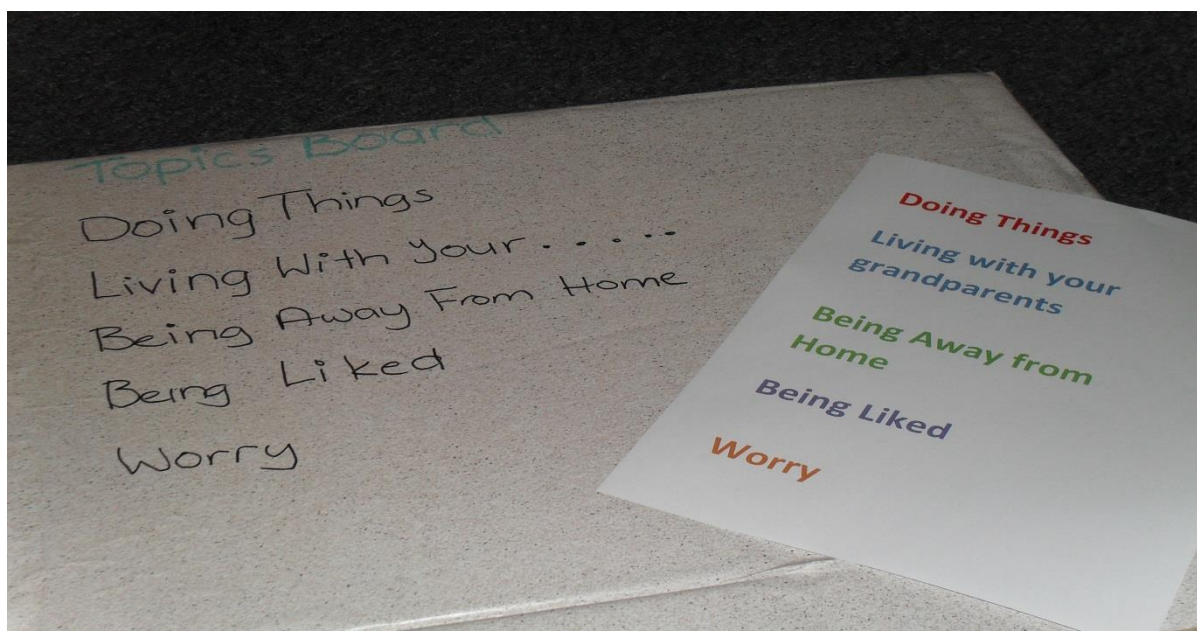 Topics Board
Doing Things
Living With your.....
Being Away From Home
Being Liked
Worry
Doing Things
Living with your
grandparents
Being Away from
Home
Being Liked
Worry